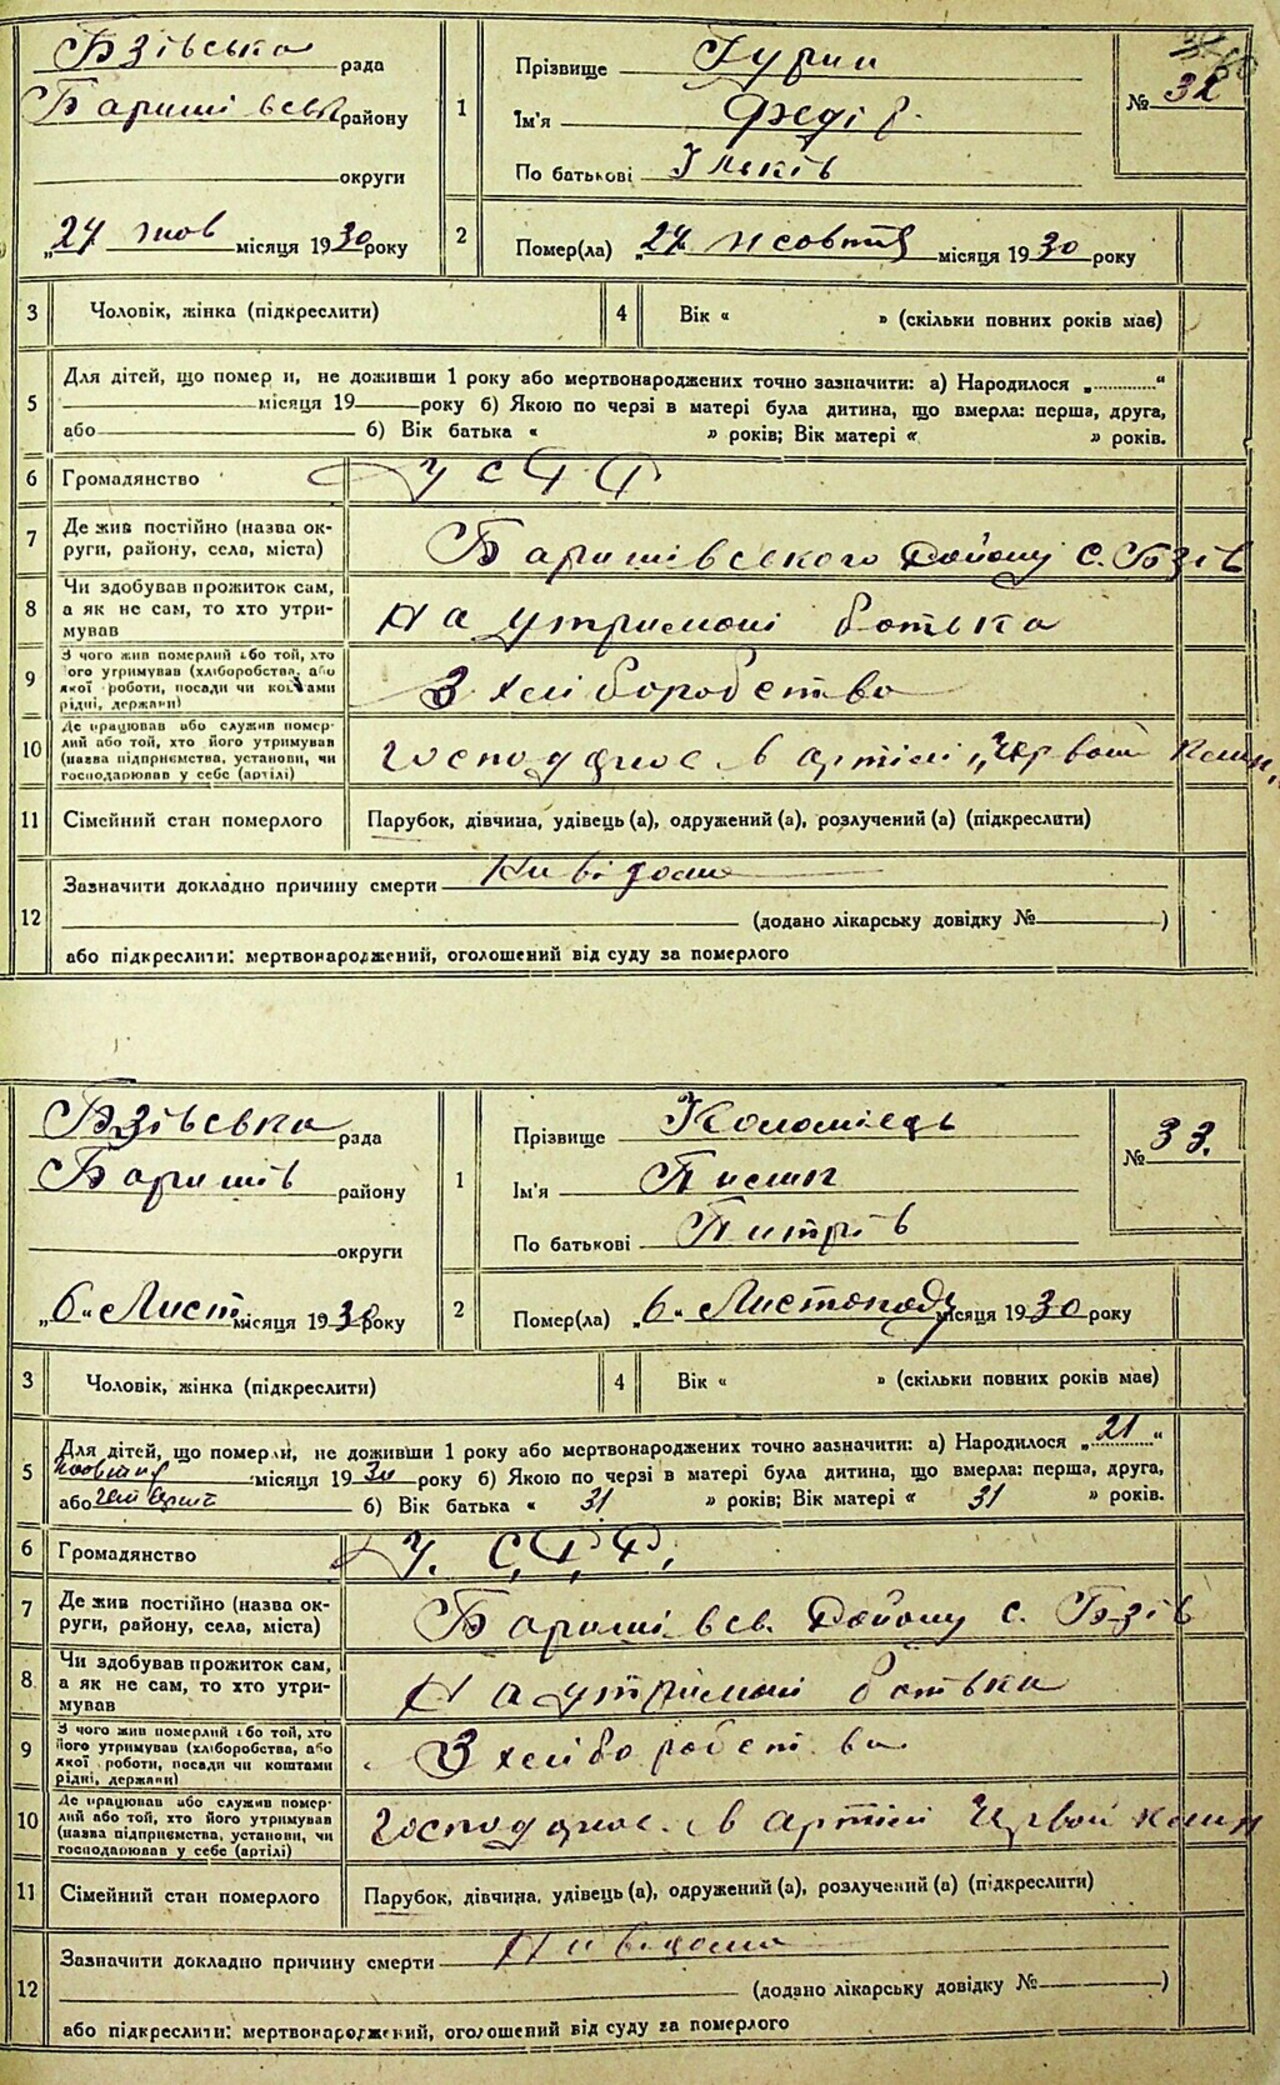 Бзівська рада
Баришівськ району
округи
„24 жов місяця 1930 року
1
Прізвище Гурин
Ім'я Федір.
По батькові Ільків
№ 32
2
Помер(ла) „24 жовтня місяця 1930 року
3 Чоловік, жінка (підкреслити)
4 Вік « » (скільки повних років має)
5 Для дітей, що померли, не доживши 1 року або мертвонароджених точно зазначити: а) Народилося „............“
місяця 19 року б) Якою по черзі в матері була дитина, що вмерла: перша, друга,
або б) Вік батька « » років; Вік матері « » років.
6 Громадянство УСРР
7 Де жив постійно (назва ок-
руги, району, села, міста)
Баришівського Району с. Бзів
8 Чи здобував прожиток сам,
а як не сам, то хто утри-
мував
На утримані батька
9 З чого жив померлий або той, хто
його утримував (хліборобства, або
якої роботи, посади чи коштами
рідні, держави)
З хліборобства
10 Де працював або служив помер-
лий або той, хто його утримував
(назва підприємства, установи, чи
господарював у себе (артілі)
Господарює в артілі „Черво
11 Сімейний стан померлого Парубок, дівчина, удівець (а), одружений (а), розлучений (а) (підкреслити)
12 Зазначити докладно причину смерти Нивідома
(додано лікарську довідку № )
або підкреслити: мертвонароджений, оголошений від суду за померлого
Бзівська рада
Баришів району
округи
„6“ Лист місяця 1930 року
1
Прізвище Коломієць
Ім'я
По батькові Питрів
№ 33.
2
Помер(ла) „6“ Листопаду місяця 1930 року
3 Чоловік, жінка (підкреслити)
4 Вік « » (скільки повних років має)
5 Для дітей, що померли, не доживши 1 року або мертвонароджених точно зазначити: а) Народилося „21“
місяця 1930 року б) Якою по черзі в матері була дитина, що вмерла: перша, друга,
або б) Вік батька « 31 » років; Вік матері « 31 » років.
6 Громадянство У. С,Р,Р,
7 Де жив постійно (назва ок-
руги, району, села, міста)
Баришівсь. Району с. Бзів
8 Чи здобував прожиток сам,
а як не сам, то хто утри-
мував
На утримані батька
9 З чого жив померлий або той, хто
його утримував (хліборобства, або
якої роботи, посади чи коштами
рідні, держави)
З хліборобства
10 Де працював або служив помер-
лий або той, хто його утримував
(назва підприємства, установи, чи
господарював у себе (артілі)
Господарює в артілі
11 Сімейний стан померлого Парубок, дівчина, удівець (а), одружений (а), розлучений (а) (підкреслити)
12 Зазначити докладно причину смерти Нивідома
(додано лікарську довідку № )
або підкреслити: мертвонароджений, оголошений від суду за померлого